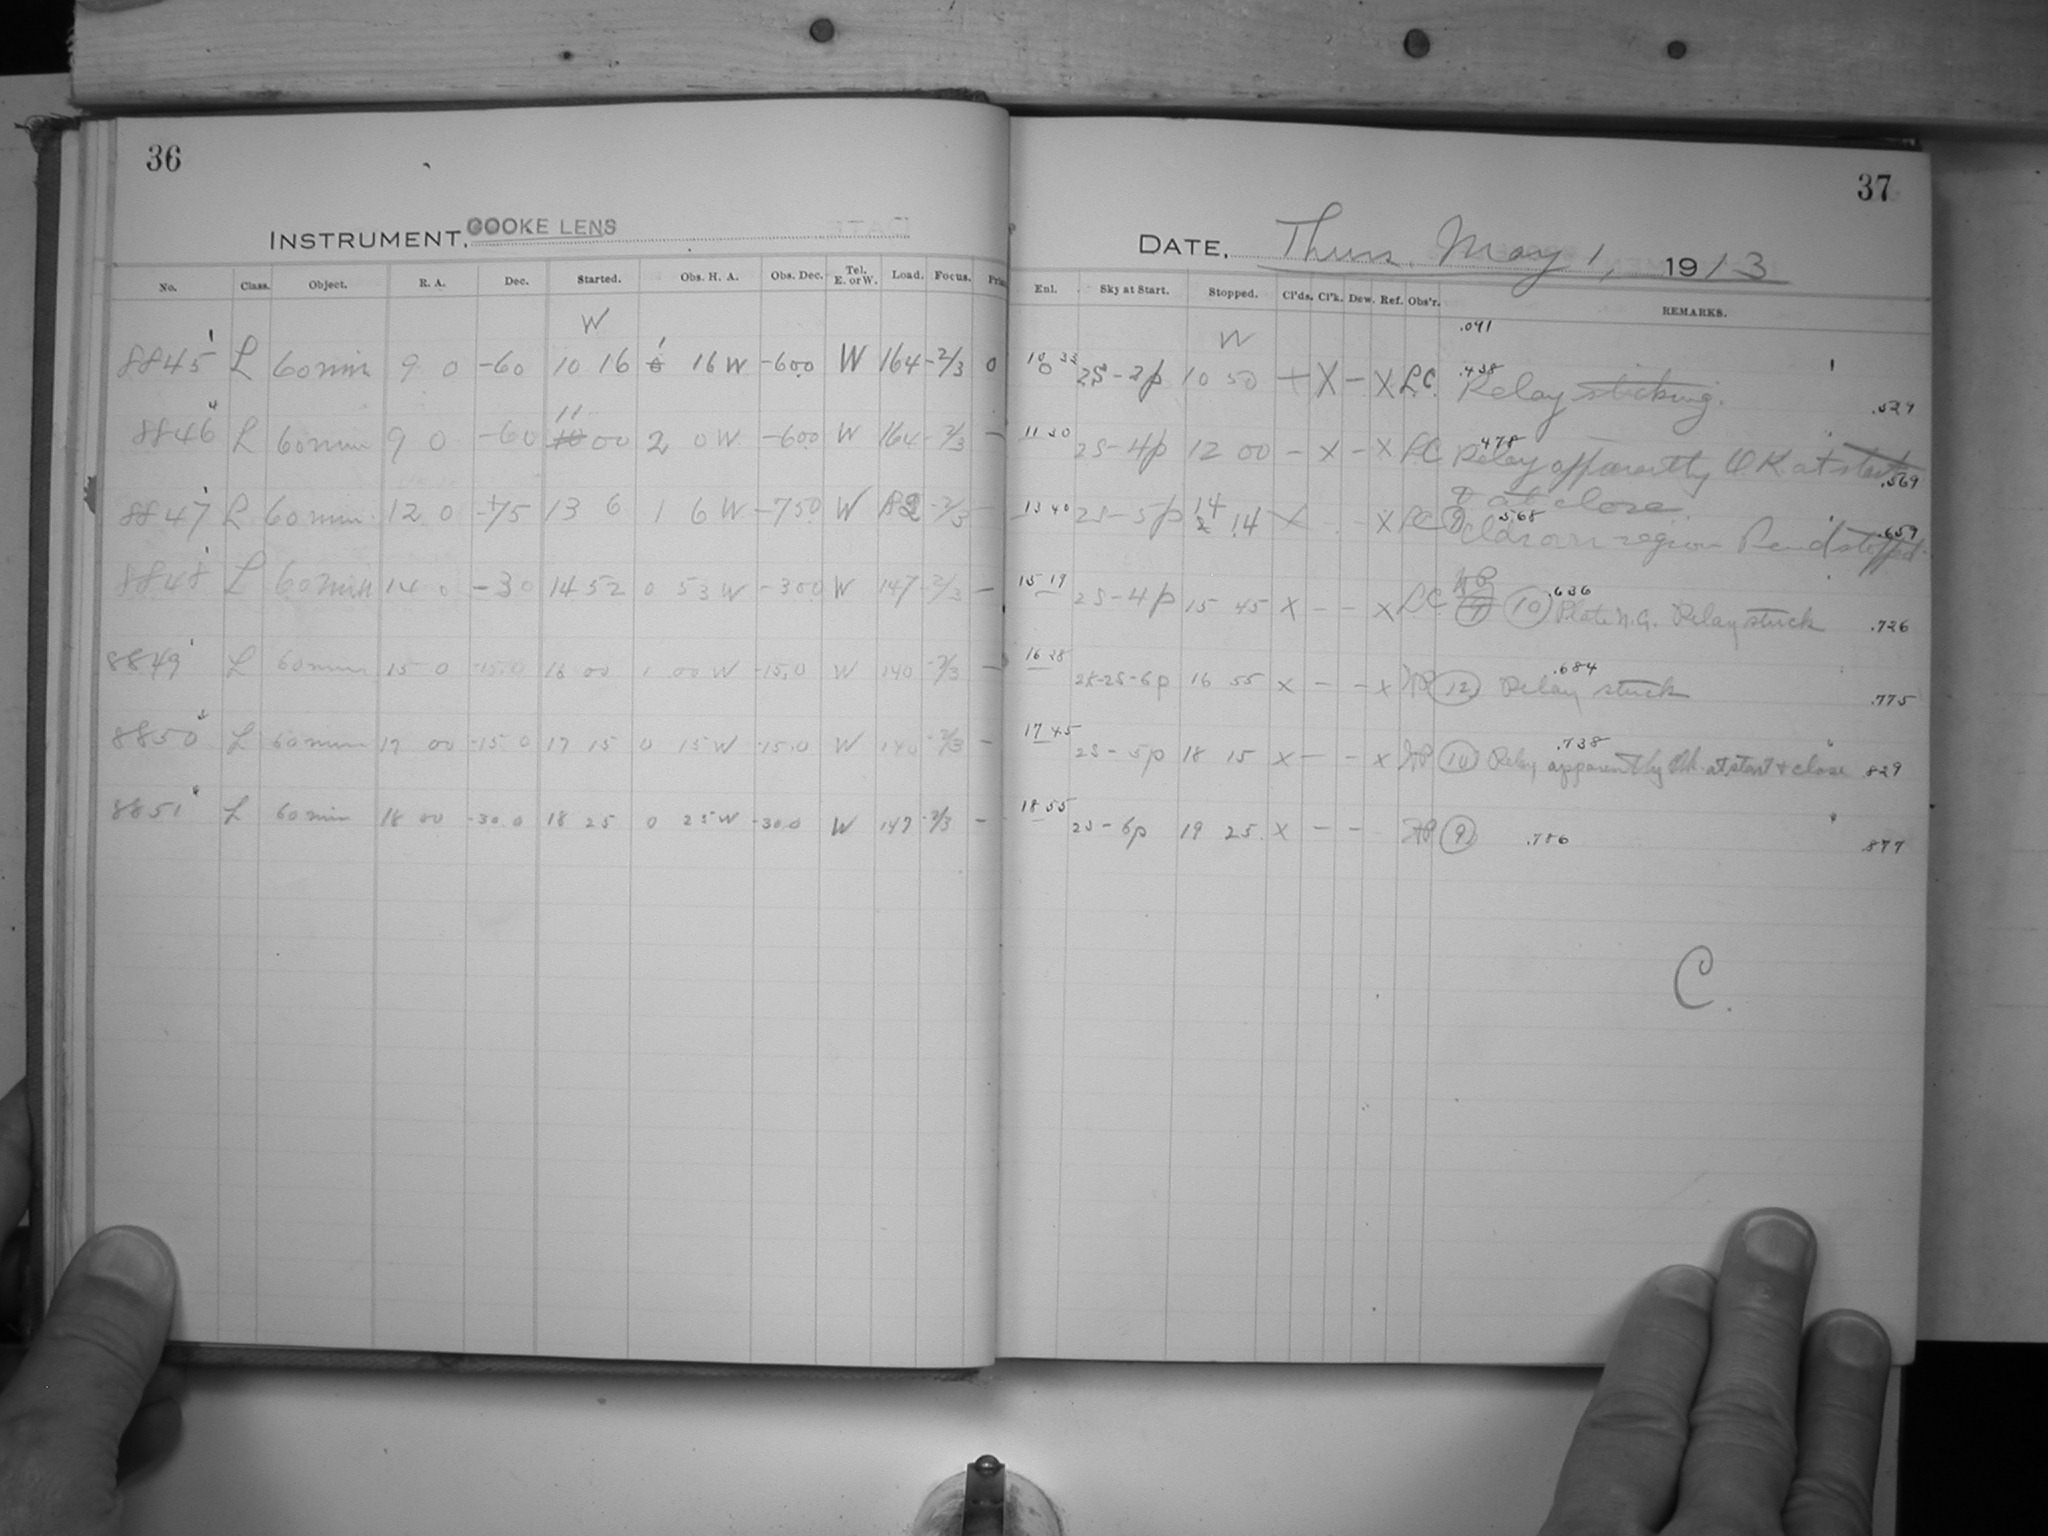 36
INSTRUMENT, COOKE LENS
No. Class. Object. R. A. Dec. Started. Obs. H. A. Obs. Dec. Tel. E. or W. Load. Focus.
W
8845 L 60 min 9 0 -60 10 16 16 W -600 W 164 -2/3 0
8846 L 60 min 9 0 -60 11 00 2 0 W -600 W 164 -2/3 —
8847 L 60 min 12 0 -75 13 6 1 6 W -750 W 182 -2/3 —
8848 L 60 min 14 0 -30 14 52 0 53 W -300 W 147 -2/3 —
8849 L 60 min 15 0 -15.0 16 00 1 00 W -15.0 W 140 -2/3 —
8850 L 60 min 17 00 -15 0 17 15 0 15 W -15.0 W 140 -2/3 —
8851 L 60 min 18 00 -30 0 18 25 0 25 W -300 W 147 -2/3 —
37
DATE, Thurs. May 1, 1913
Enl. Sky at Start. Stopped. Cl'ds. Cl'k. Dew. Ref. Obs'r. REMARKS.
W .091
10 33 2S-2p 10 50 + X - X LC .438 Relay sticking. .529
11 30 2S-4p 12 00 - X - X LC .478 Relay apparently O.K. at start .569
& at close
13 40 2S-5p 14 14 X - X LC .568 region stopped. .659
15 19 2S-4p 15 45 X - - X LC 10 .636 Plate N.G. Relay stuck .726
16 28 2S-6p 16 55 X - - X 12 .684 Relay stuck .775
17 45 2S-5p 18 15 X - - X 10 .738 Relay apparently O.K. at start & close .829
18 55 2S-6p 19 25 X - - 9 .786 .877
C.